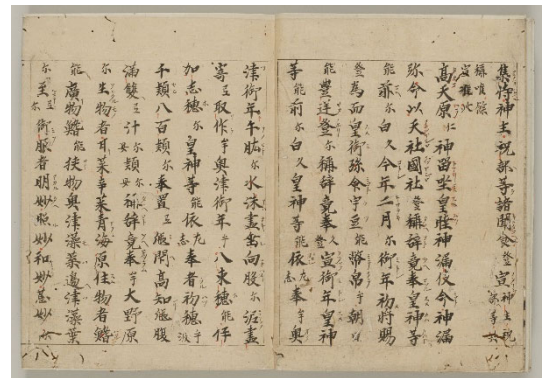 集侍神主祝部等諸聞食登宣神主祝部等共
稱唯餘
宣准此
高天原仁神留坐皇睦神漏伎命神漏
弥命以天社國社登稱辞竟奉皇神等
能前尓白久今年二月尓御年初將賜
登為而皇御孫命宇豆能幣帛乎朝日
能豊逆登尓稱辞竟奉登宣御年皇神
等能前尓白久皇神等能依志奉牟奥
津御年乎手肱尓水沫畫垂向股尓泥畫
寄弖取作牟奥津御年乎八束穂能伊
加志穂尓皇神等能依志奉者初穂乎波
千穎八百穎尓奉置弖閇高知腹
滿雙弖汁尓母穎尓母稱辞竟奉牟大野原
尓生物者甘菜辛菜青海原住物者鰭
能廣物鰭能狭物奥津藻菜邊津藻葉
尓至弖尓御服者明妙照妙和妙荒妙尓